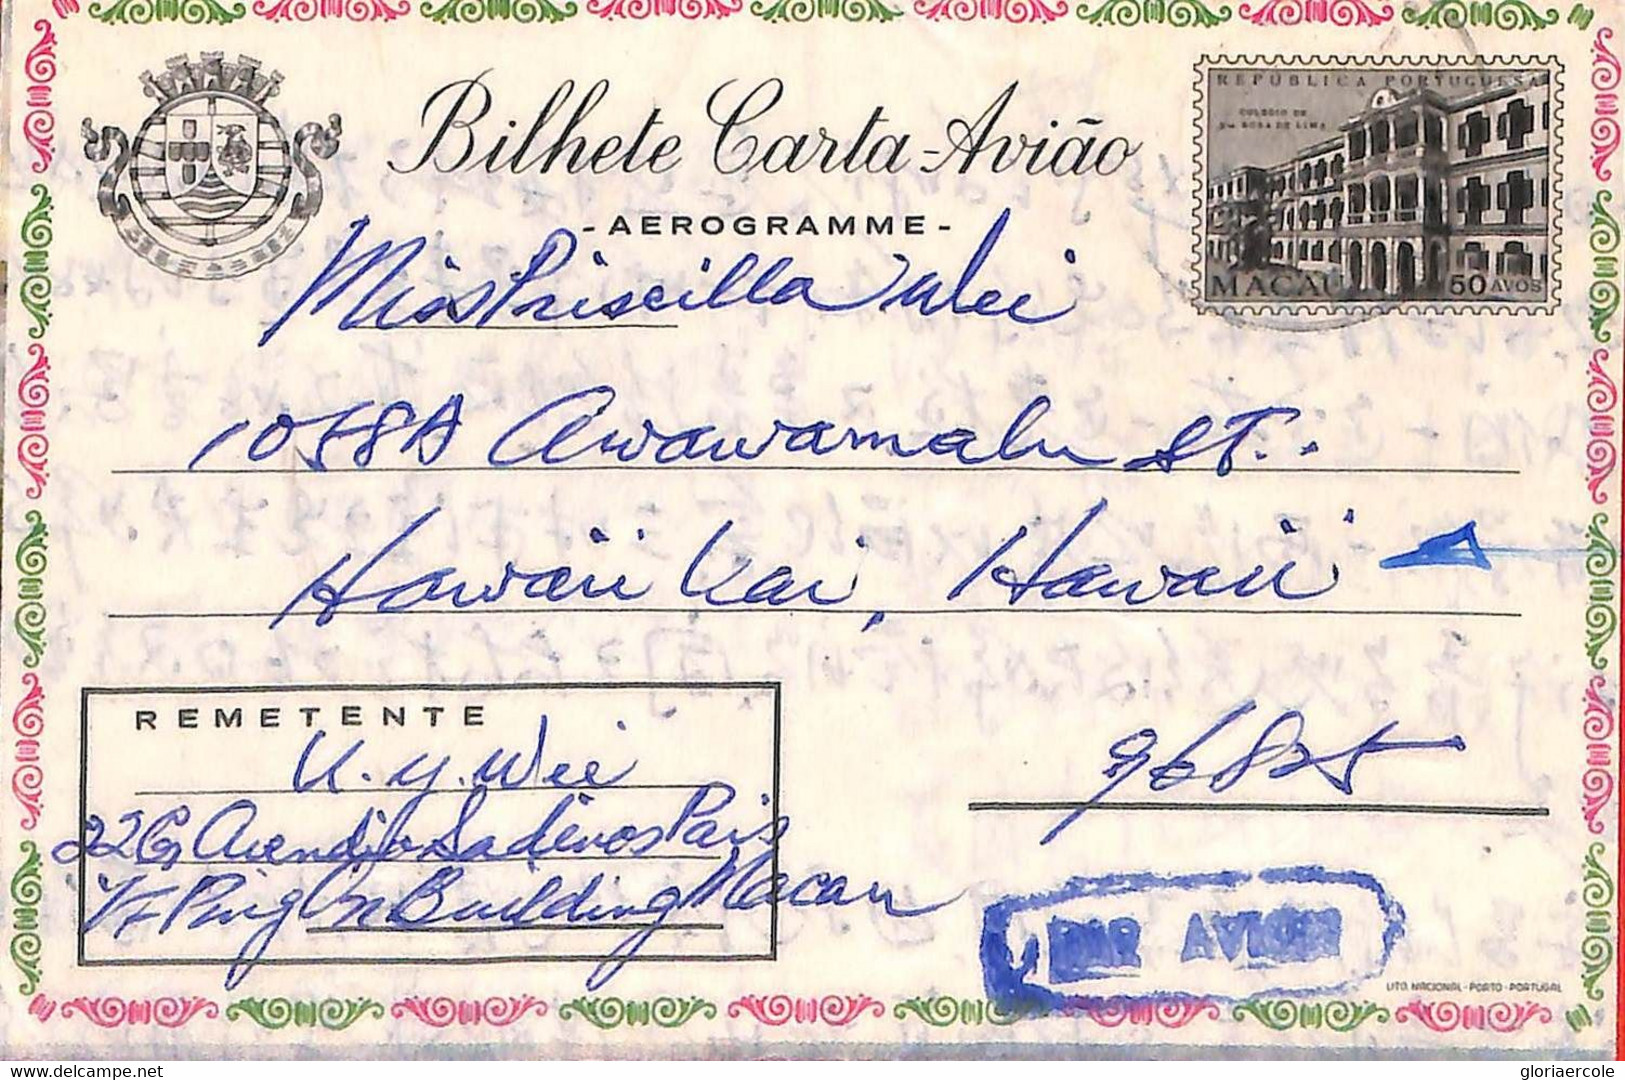 REPÚBLICA PORTUGUESA
COLÉGIO DE
Sta ROSA DE LIMA
Bilhete Carta-Avião
- AEROGRAMME -
MACAU 50 AVOS
Miss Priscilla Wei
1058A Awawamalu St.
Hawaii Kai, Hawaii
96825
REMETENTE
K. Y. Wei
22G, Avendio Sadinos Pais
1/F Ping On Building Macau
PAR AVION
LITO. NACIONAL - PORTO - PORTUGAL
the-philately.net
delcampe.net
gloriaercole